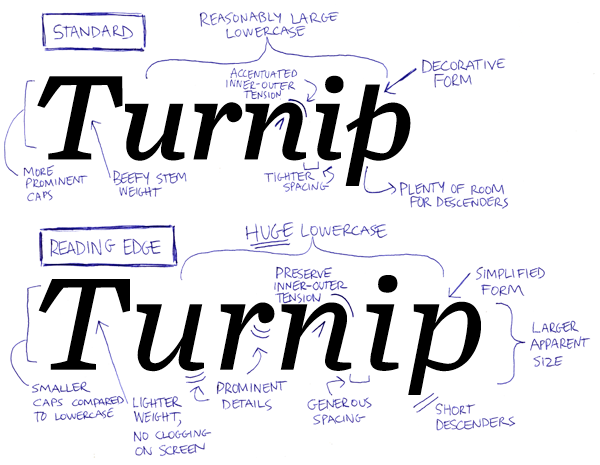 STANDARD
REASONABLY LARGE
LOWERCASE
ACCENTUATED
INNER-OUTER
TENSION
DECORATIVE
FORM
Turnip
MORE
PROMINENT
CAPS
BEEFY STEM
WEIGHT
TIGHTER
SPACING
PLENTY OF ROOM
FOR DESCENDERS
READING EDGE
HUGE LOWERCASE
PRESERVE
INNER-OUTER
TENSION
SIMPLIFIED
FORM
Turnip
LARGER
APPARENT
SIZE
SMALLER
CAPS COMPARED
TO LOWERCASE
LIGHTER
WEIGHT,
NO CLOGGING
ON SCREEN
PROMINENT
DETAILS
GENEROUS
SPACING
SHORT
DESCENDERS